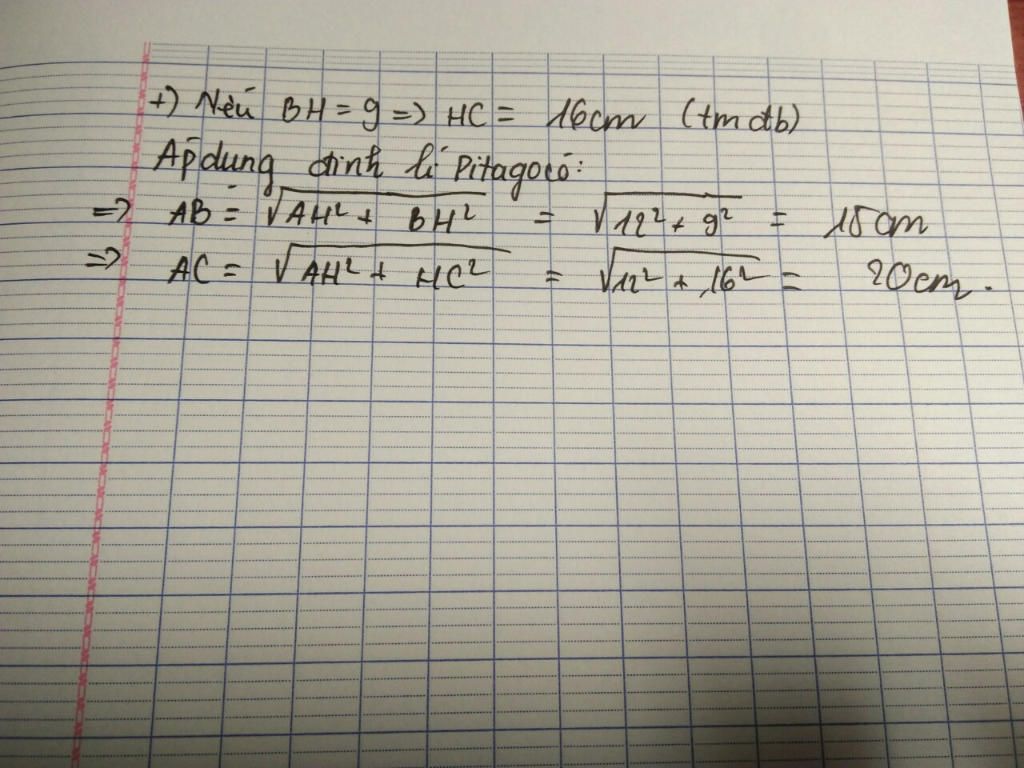 +) Nếu BH = 9 => HC = 16cm (tmđb)
Áp dụng định lí Pitago có:
=> AB = √AH² + BH² = √12² + 9² = 15cm
=> AC = √AH² + HC² = √12² + 16² = 20cm.